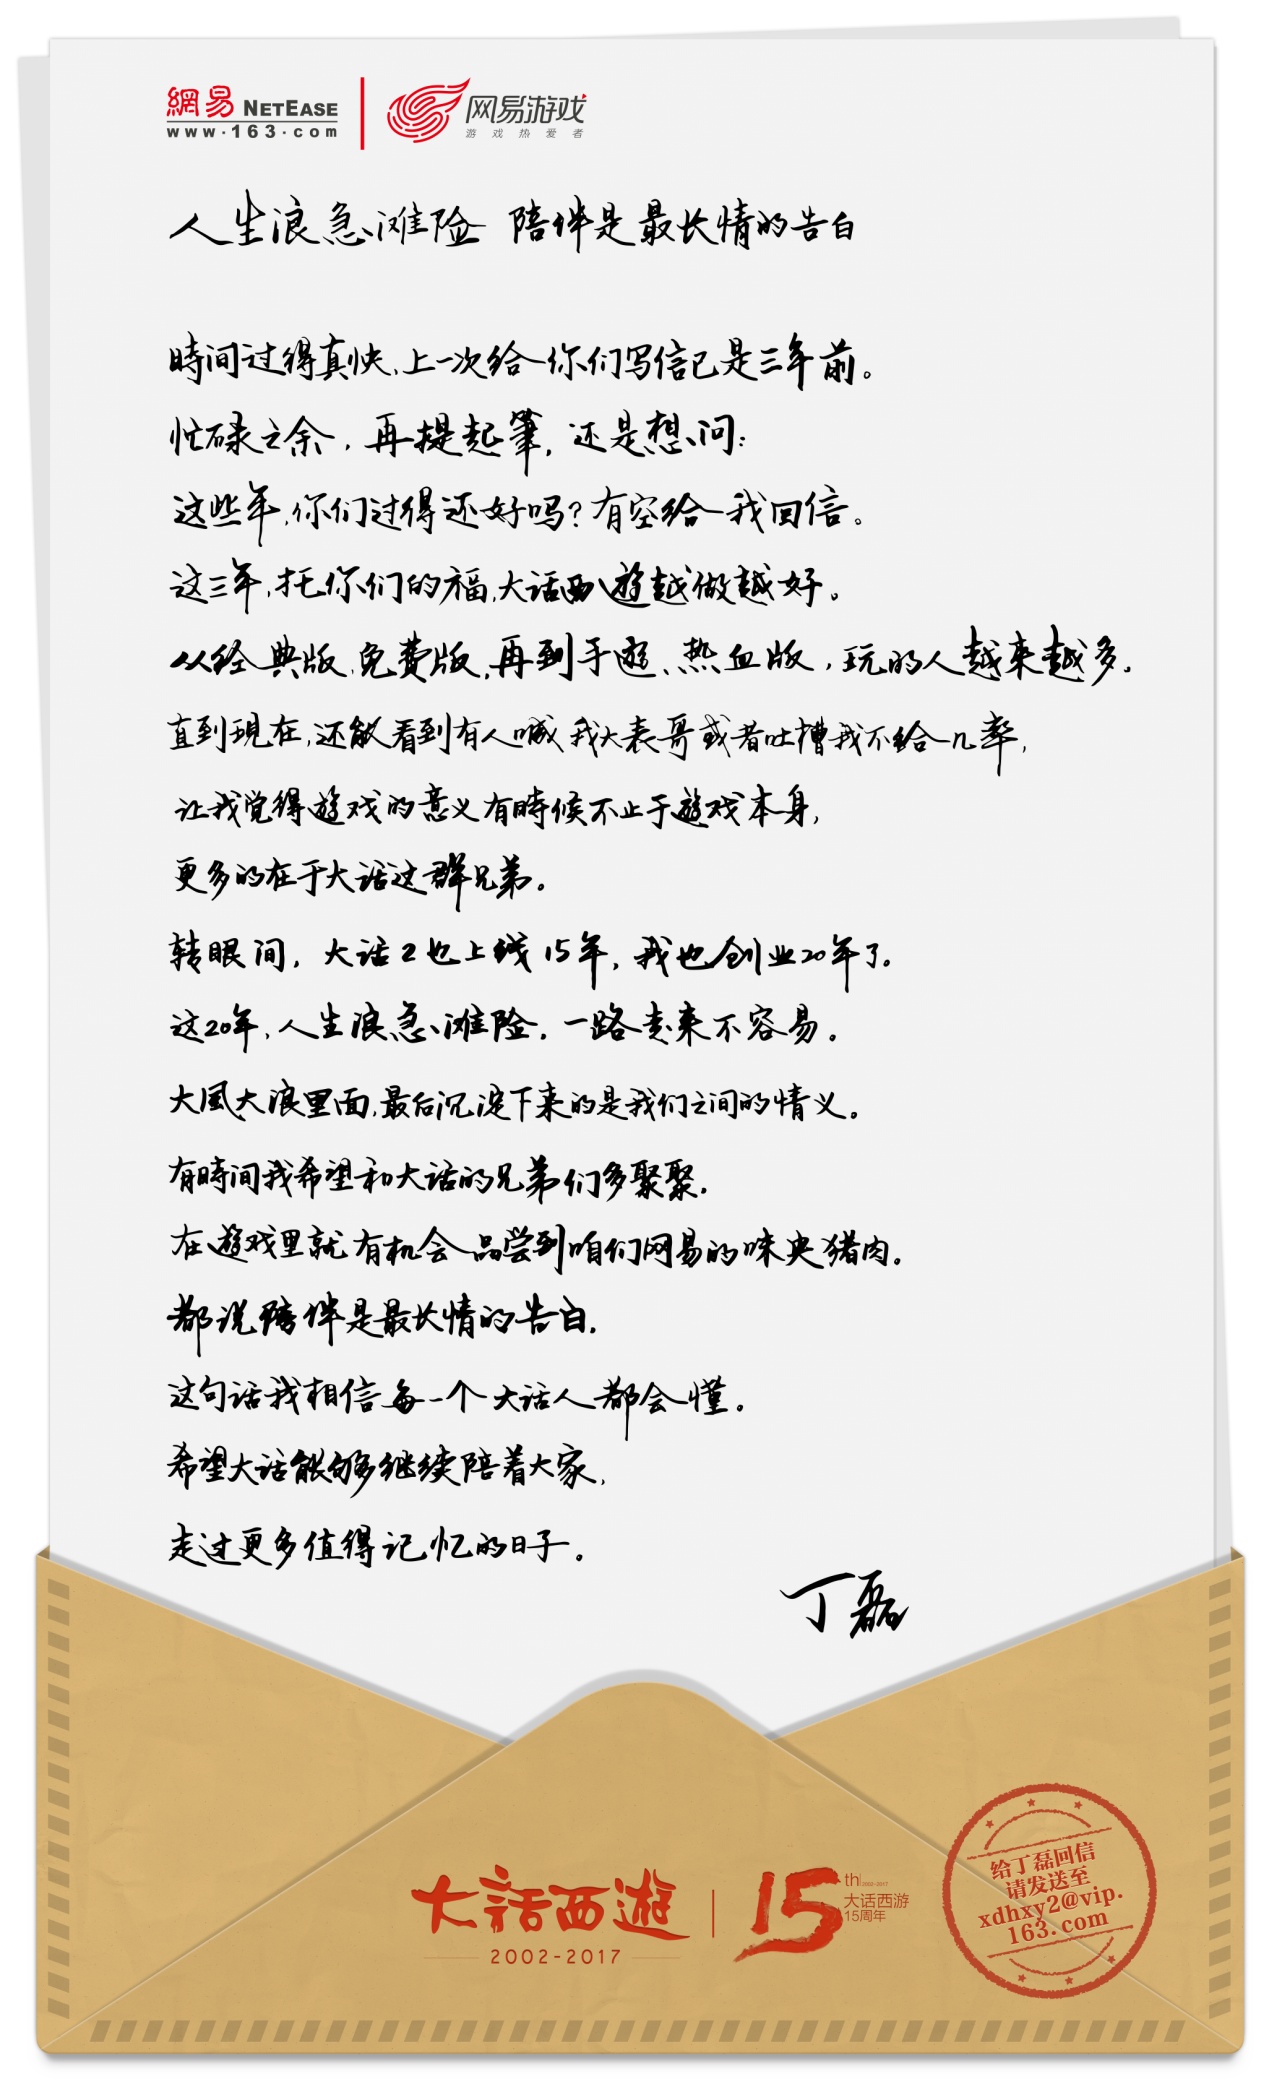 網易 NETEASE
www.163.com
网易游戏
游戏热爱者
人生浪急滩险 陪伴是最长情的告白
時间过得真快,上一次给你们写信已是三年前。
忙碌之余,再提起筆,还是想问:
这些年,你们过得还好吗?有空给我回信。
这三年,托你们的福,大话西遊越做越好。
从经典版、免费版,再到手遊、热血版,玩的人越来越多。
直到現在,还能看到有人喊我大表哥或者吐槽我不给几率,
让我觉得遊戏的意义有時候不止于遊戏本身,
更多的在于大话这群兄弟。
转眼间,大话2也上线15年,我也创业20年了。
这20年,人生浪急滩险,一路走来不容易。
大風大浪里面,最后沉淀下来的是我们之间的情义。
有時间我希望和大话的兄弟们多聚聚,
在遊戏里就有机会品尝到咱们网易的味央猪肉。
都说陪伴是最长情的告白,
这句话我相信每一个大话人都会懂。
希望大话能够继续陪着大家,
走过更多值得记忆的日子。
丁磊
大话西遊
2002-2017
15th 2002-2017
大话西游
15周年
给丁磊回信
请发送至
xdhxy2@vip.
163.com